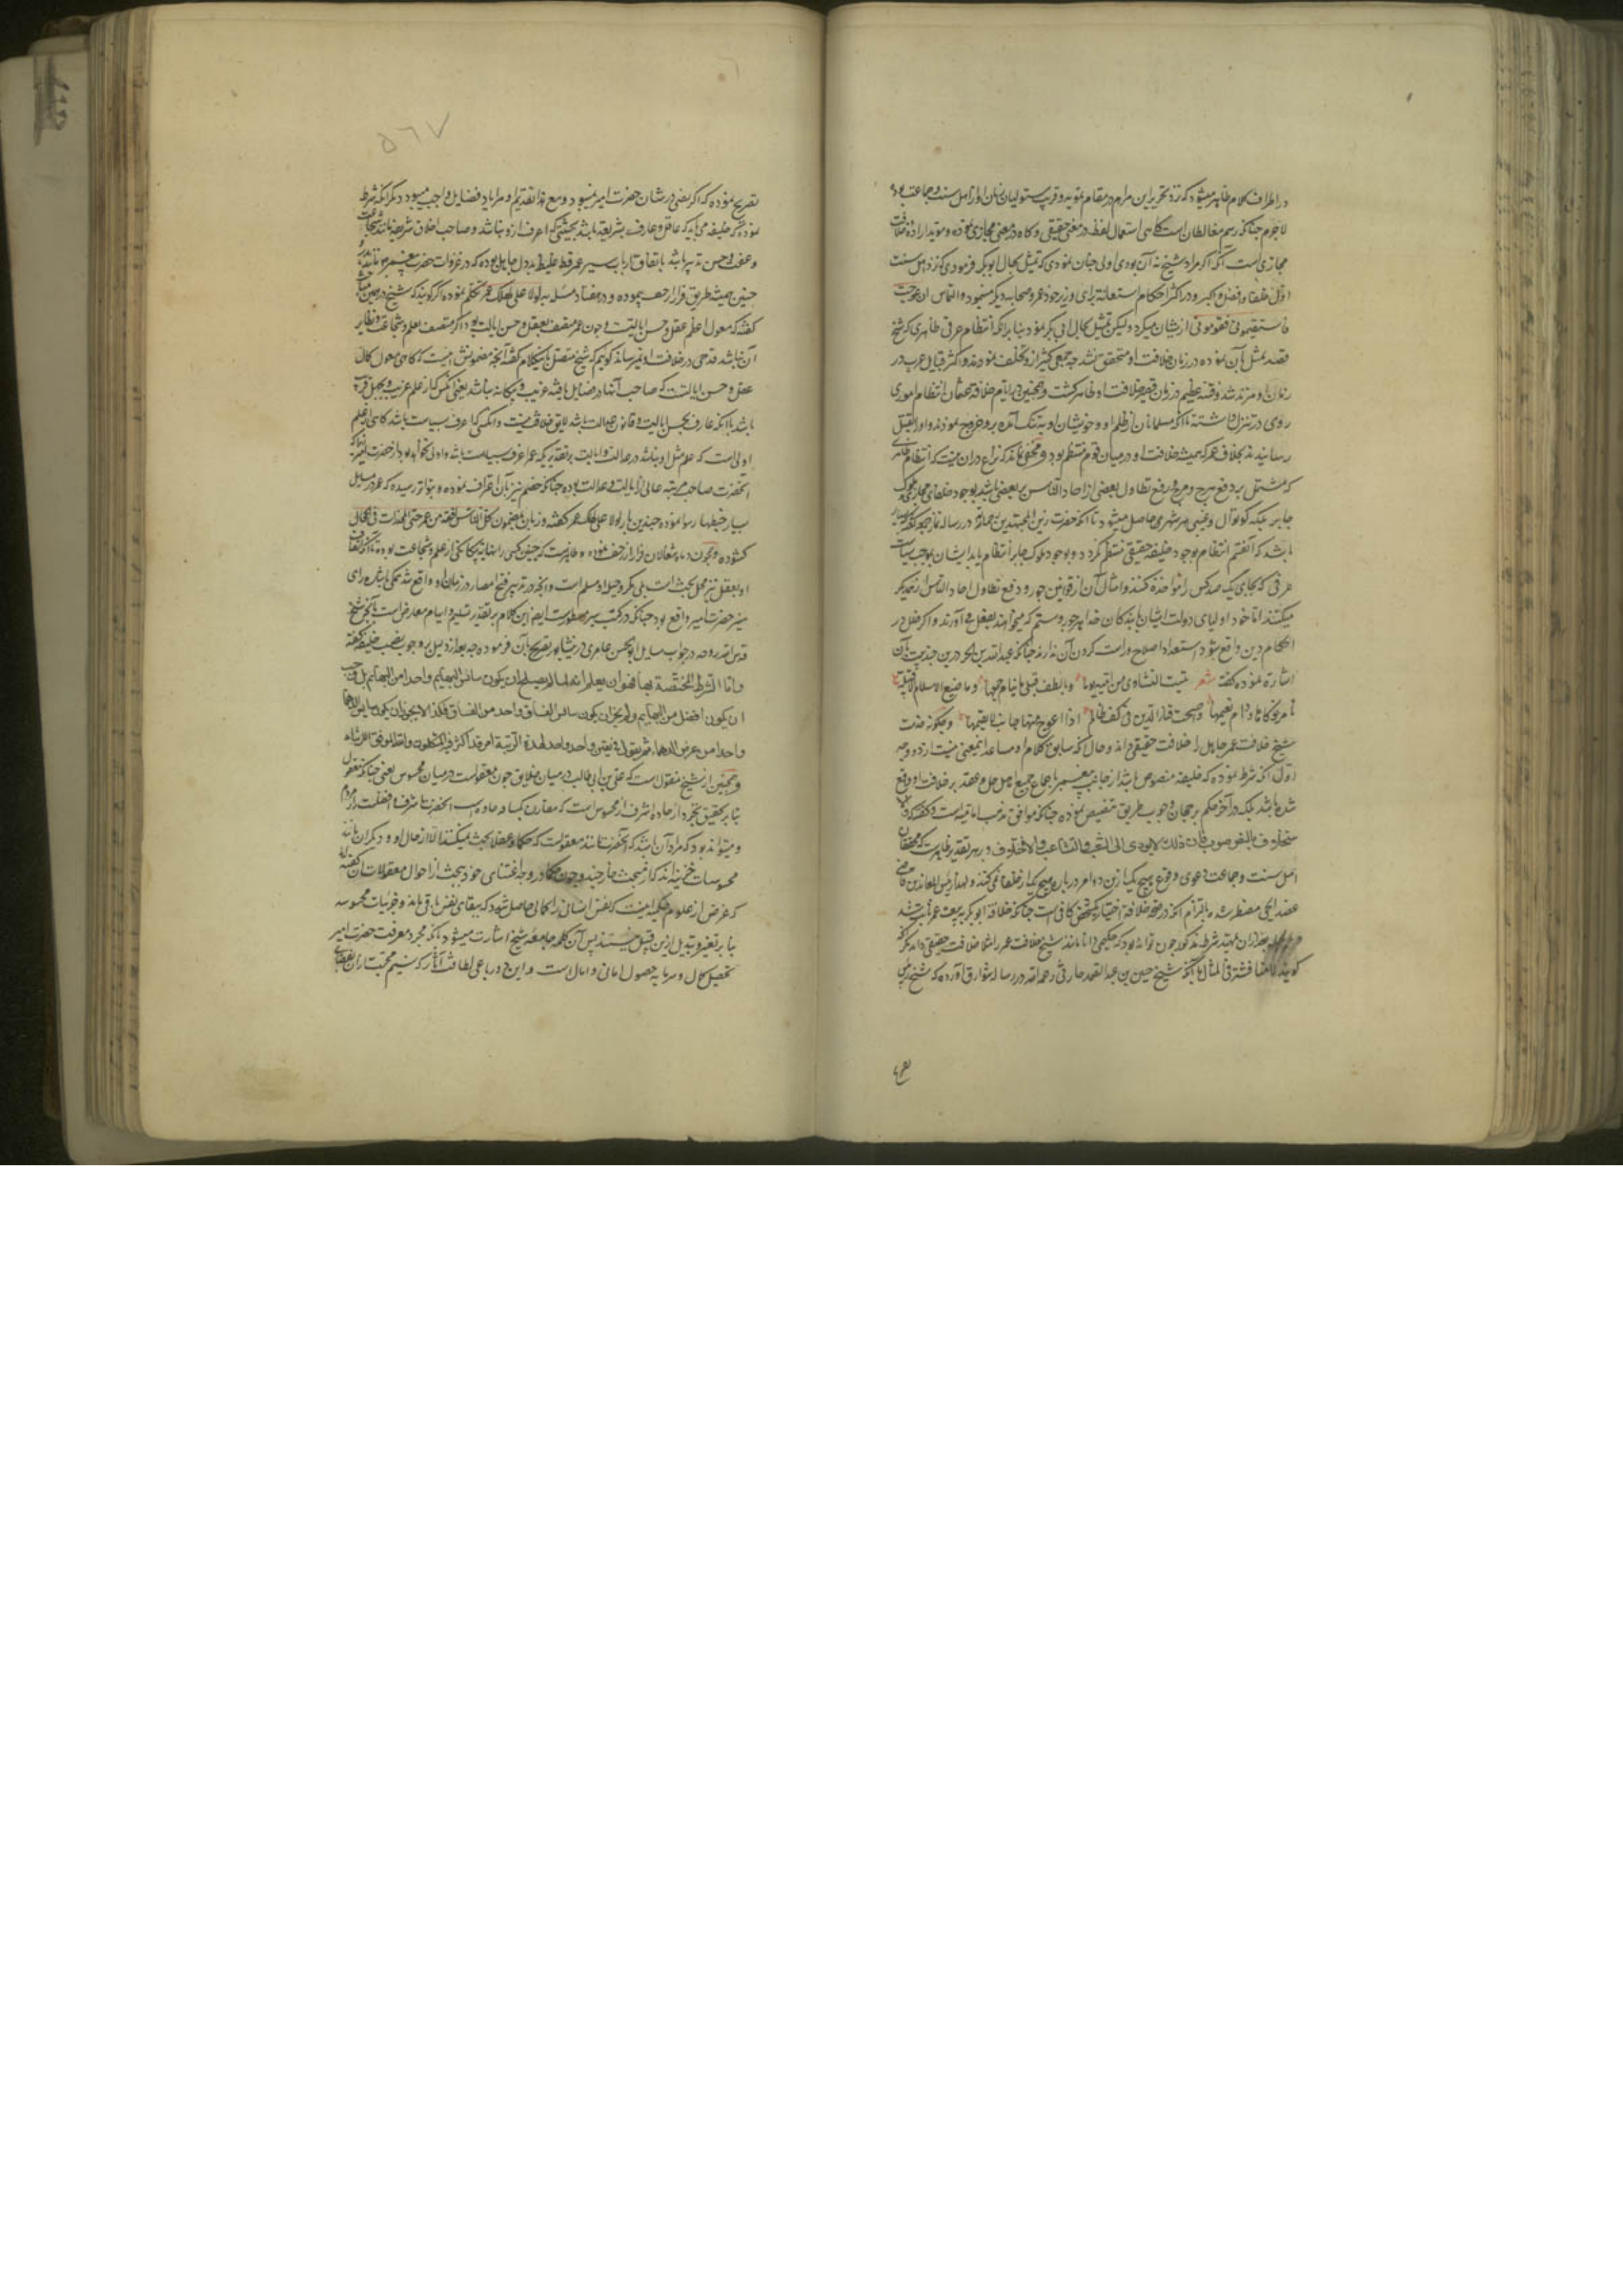 در اطراف کلام ظاهر میشود که نزد تحریر این مرام در مقام تمویه و فریب متولیان زمان او از اهل سنت و جماعت بوده
لاجرم چنانکه رسم مغالطان است گاهی استعمال لفظ در معنی حقیقی و گاه در معنی مجازی نموده و موید اراده خلافت
مجازی است آنکه اگر مراد شیخ نه آن بودی اولی چنان نمودی که تمثیل بحال ابوبکر فرمودی که نزد اهل سنت
اول خلفا و افضل و اکبر و در اکثر احکام استعانة برای وزیر خود عمر و صحابه دیگر مینمود و التماس ان عوجت
فاستقیمونی فقومونی از یشان میکرد ولیکن تمثیل بحال ابی بکر نمود بنا بر آنکه انتظام عرفی ظاهری که شیخ
قصد تمثل بآن نموده در زمان خلافت او متحقق نشد چه جمعی کثیر ازو تخلف نمودند و اکثر قبایل عرب در
زمان او مرتد شدند و فتنه عظیم در زمان قصیر خلافت او ظاهر گشت و همچنین در ایام خلافة عثمان انتظام امور
روی در تنزل داشته تا آنکه مسلمانان از ظلم او و خویشان او به تنگ آمده برو خروج نمودند و او را بقتل
رسانیدند بخلاف عمر که همیشه خلافت او در میان قوم منتظم بود و مخفی نماند که نزاع در ان نیست که انتظام ظاهری
که مشتمل بر دفع هرج و مرج و رفع تطاول بعضی از احاد الناس بر بعضی باشد بوجود خلفای مجازی و ملوک
جابر بلکه کوتوال و عسس هر شهری حاصل میشود تا آنکه حضرت زین المجتهدین رحمه الله در رساله نماز جمعه گفته که بسیار
باشد که آنقسم انتظام بوجود خلیفه حقیقی منتظم نگردد و بوجود ملوک جابر انتظام یابد ایشان بموجب سیاست
عرفی که بجای یک صد کس را مواخذه کنند و امثال آن از قوانین جور و دفع تطاول احاد الناس از یکدیگر
میکنند اما خود اولیای دولت ایشان با بندگان خدا هر جور و ستم که میخواهند بفعل می آورند و اگر خلل در
احکام دین واقع شود استعداد اصلاح و راست کردن آن ندارند چنانکه عبد الله بن الحر در ین چند بیت بآن
اشارة نموده گفته شعر تبیت النشاوی من امیة نوما و بالطف قتلی ما ینام حمیمها و ما ضیع الاسلام الا قبیلة
تامر نوکاها و دام نعیمها و اضحت قناة الدین فی کف ظالم اذا اعوج منها جانب لا یقیمها و چگونه حضرت
شیخ خلافت عمر جاهل را خلافت حقیقی داند و حال آنکه سابق کلام او مساعد اینمعنی نیست از دو وجه
اول آنکه شرط نموده که خلیفه منصوص باشد از جانب پیغمبر یا باجماع جمیع اهل حل و عقد بر خلافت او واقع
شده باشد بلکه در آخر حکم برجحان وجوب طریق تنصیص نموده چنانکه موافق مذهب امامیه است و گفته که
ستخلاف بالنص صوب فان ذلک لا یودی الی الشعب و التشاغب و الاختلاف و بر هر تقدیر ظاهرست که محققان
اهل سنت و جماعت دعوی وقوع هیچ یک ازین دو امر در باره هیچ یک از خلفا نمی کنند و لهذا رئیس المعاندین قاضی
عضد ایجی مضطر شده بالتزام آنکه در صحة خلافة اختیار یک شخص کافی است چنانکه خلافة ابوبکر به بیعت عمر ثابت شد
بعد از ان تمهید شرط مذکور چون تواند بود که حکیمی دانا مانند شیخ خلافت عمر را مثلا خلافت حقیقی داند مگر آنکه
گویند لا مناقشة فی المثال با آنکه شیخ حسین بن عبد الصمد حارثی رحمه الله در رساله شوارق آورده که شیخ رئیس
تصریح
۵۶۷
تصریح نموده که اگر نصی در شان حضرت امیر نمیبود و مع هذا تقدیم او مر از یاد فضایل واجب میبود دیگر آنکه شرط
نموده که خلیفه می باید که عاقل و عارف بشریعة باشد بحیثیتی که اعرف ازو نباشد و صاحب اخلاق شریفه مانند شجاعت
و عفت و حسن تدبیر باشد باتفاق ارباب سیر عمر فظ غلیظ بد دل جاهل بوده که در غزوات حضرت پیغمبر مانند
حنین همیشه طریق فرار از زحف پیموده و در هفتاد مسئله به لولا علی لهلک عمر تکلم نموده اگر گویند که شیخ در همین مبحث
گفته که معول اعظم عقل و حسن ایالتست و چون عمر متصف بعقل و حسن ایالت بود اگر متصف بعلم و شجاعت و نظایر
آن نباشد قدحی در خلافت او نمیرساند گوییم که شیخ متصل باین کلام گفته آنچه مضمونش اینست که گاهی معول کمال
عقل و حسن ایالتست که صاحب آنها در فضایل باقیه غریب و بیگانه نباشد یعنی آنکس که از علم غریب و بجهل قریب
باشد با آنکه عارف بحسن ایالت و قانون عدالت باشد لایق خلافت نیست و آنکس که اعرف بسیاست باشد گاهی از اعلم
اولی است که علم مثل او نباشد در عدالت و ایالت بر تقدیر که عمر اعرف بسیاست باشد و اولی نخواهد بود از حضرت امیر چه
آنحضرت صاحب مرتبه عالی از ایالت و عدالت بوده چنانکه خصم نیز بآن اعتراف نموده و بتواتر رسیده که عمر در مسایل
بسیار خبطها رسوا نموده چندین بار لولا علی لهلک عمر گفته و زبان بمضمون کل الناس افقه من عمر حتی المخدرات فی الحجال
گشوده و همچون روباه شغالان فرار از زحف نموده و ظاهرست که چنین کسی را نهایة بیگانگی از علم و شجاعت بوده با آنکه اتصاف
او بعقل نیز محل بحث است بلی مکر و حیل او مسلم است و آنچه در تدبیر فتح امصار در زمان او واقع شد همگی باشاره و رای
منیر حضرت امیر واقع بود چنانکه در کتب سیر مسطورست ایضا این کلام بر تقدیر تسلیم و ابهام معارض است بآنچه شیخ
قدس الله روحه در جواب مسایل ابو الحسن عامری در نیشابور تصریح بآن فرموده چه بعد از دلیل بر وجوب نصب خلیفه گفته
و اما الشرط المختصة بها فهو ان یعلم انه لما لم یصلح ان یکون سائس البهایم واحدا من البهایم بل وجب
ان یکون افضل من البهایم و لم یجز ان یکون سائس الفساق واحد من الفساق فکذا لا یجوز ان یکون سایس الدهماء
واحدا من عرض الدهماء ثم یقول فی تعین واحد واحد لهذة الرتبة امر قد اکثر فیه المتکلمون و الله الموفق للرشاد
و همچنین از شیخ منقول است که علی بن ابی طالب در میان خلایق چون معقولست در میان محسوس یعنی چنانکه معقول
بنا بر تحقیق تجرد از ماده اشرف از محسوس است که مقارن کساء ماده است آنحضرت اشرف و افضلست از مردم
و میتواند بود که مراد آن باشد که آنحضرت مانند معقولست که حکما و عقلا بحث نمیکنند الا از حال او و دیگران مانند
محسوسات خسیسه اند که از مبحث خارجند و چون حکما در وجه اعتنای خود ببحث از احوال معقولات گفته اند
که غرض از علوم حکمیه اینست که نفس انسانی را کمالی حاصل شود که ببقای نفس باقی ماند و جزئیات محسوسه
بنا بر تغیر و تبدیل ازین قبیل نیستند پس آن کلمه جامعه شیخ اشارت میشود بآنکه مجرد معرفت حضرت امیر
تحصیل کمال و سرمایه حصول امانی و امال است و این دو رباعی لطافت آثار که نسیم محبت از ان